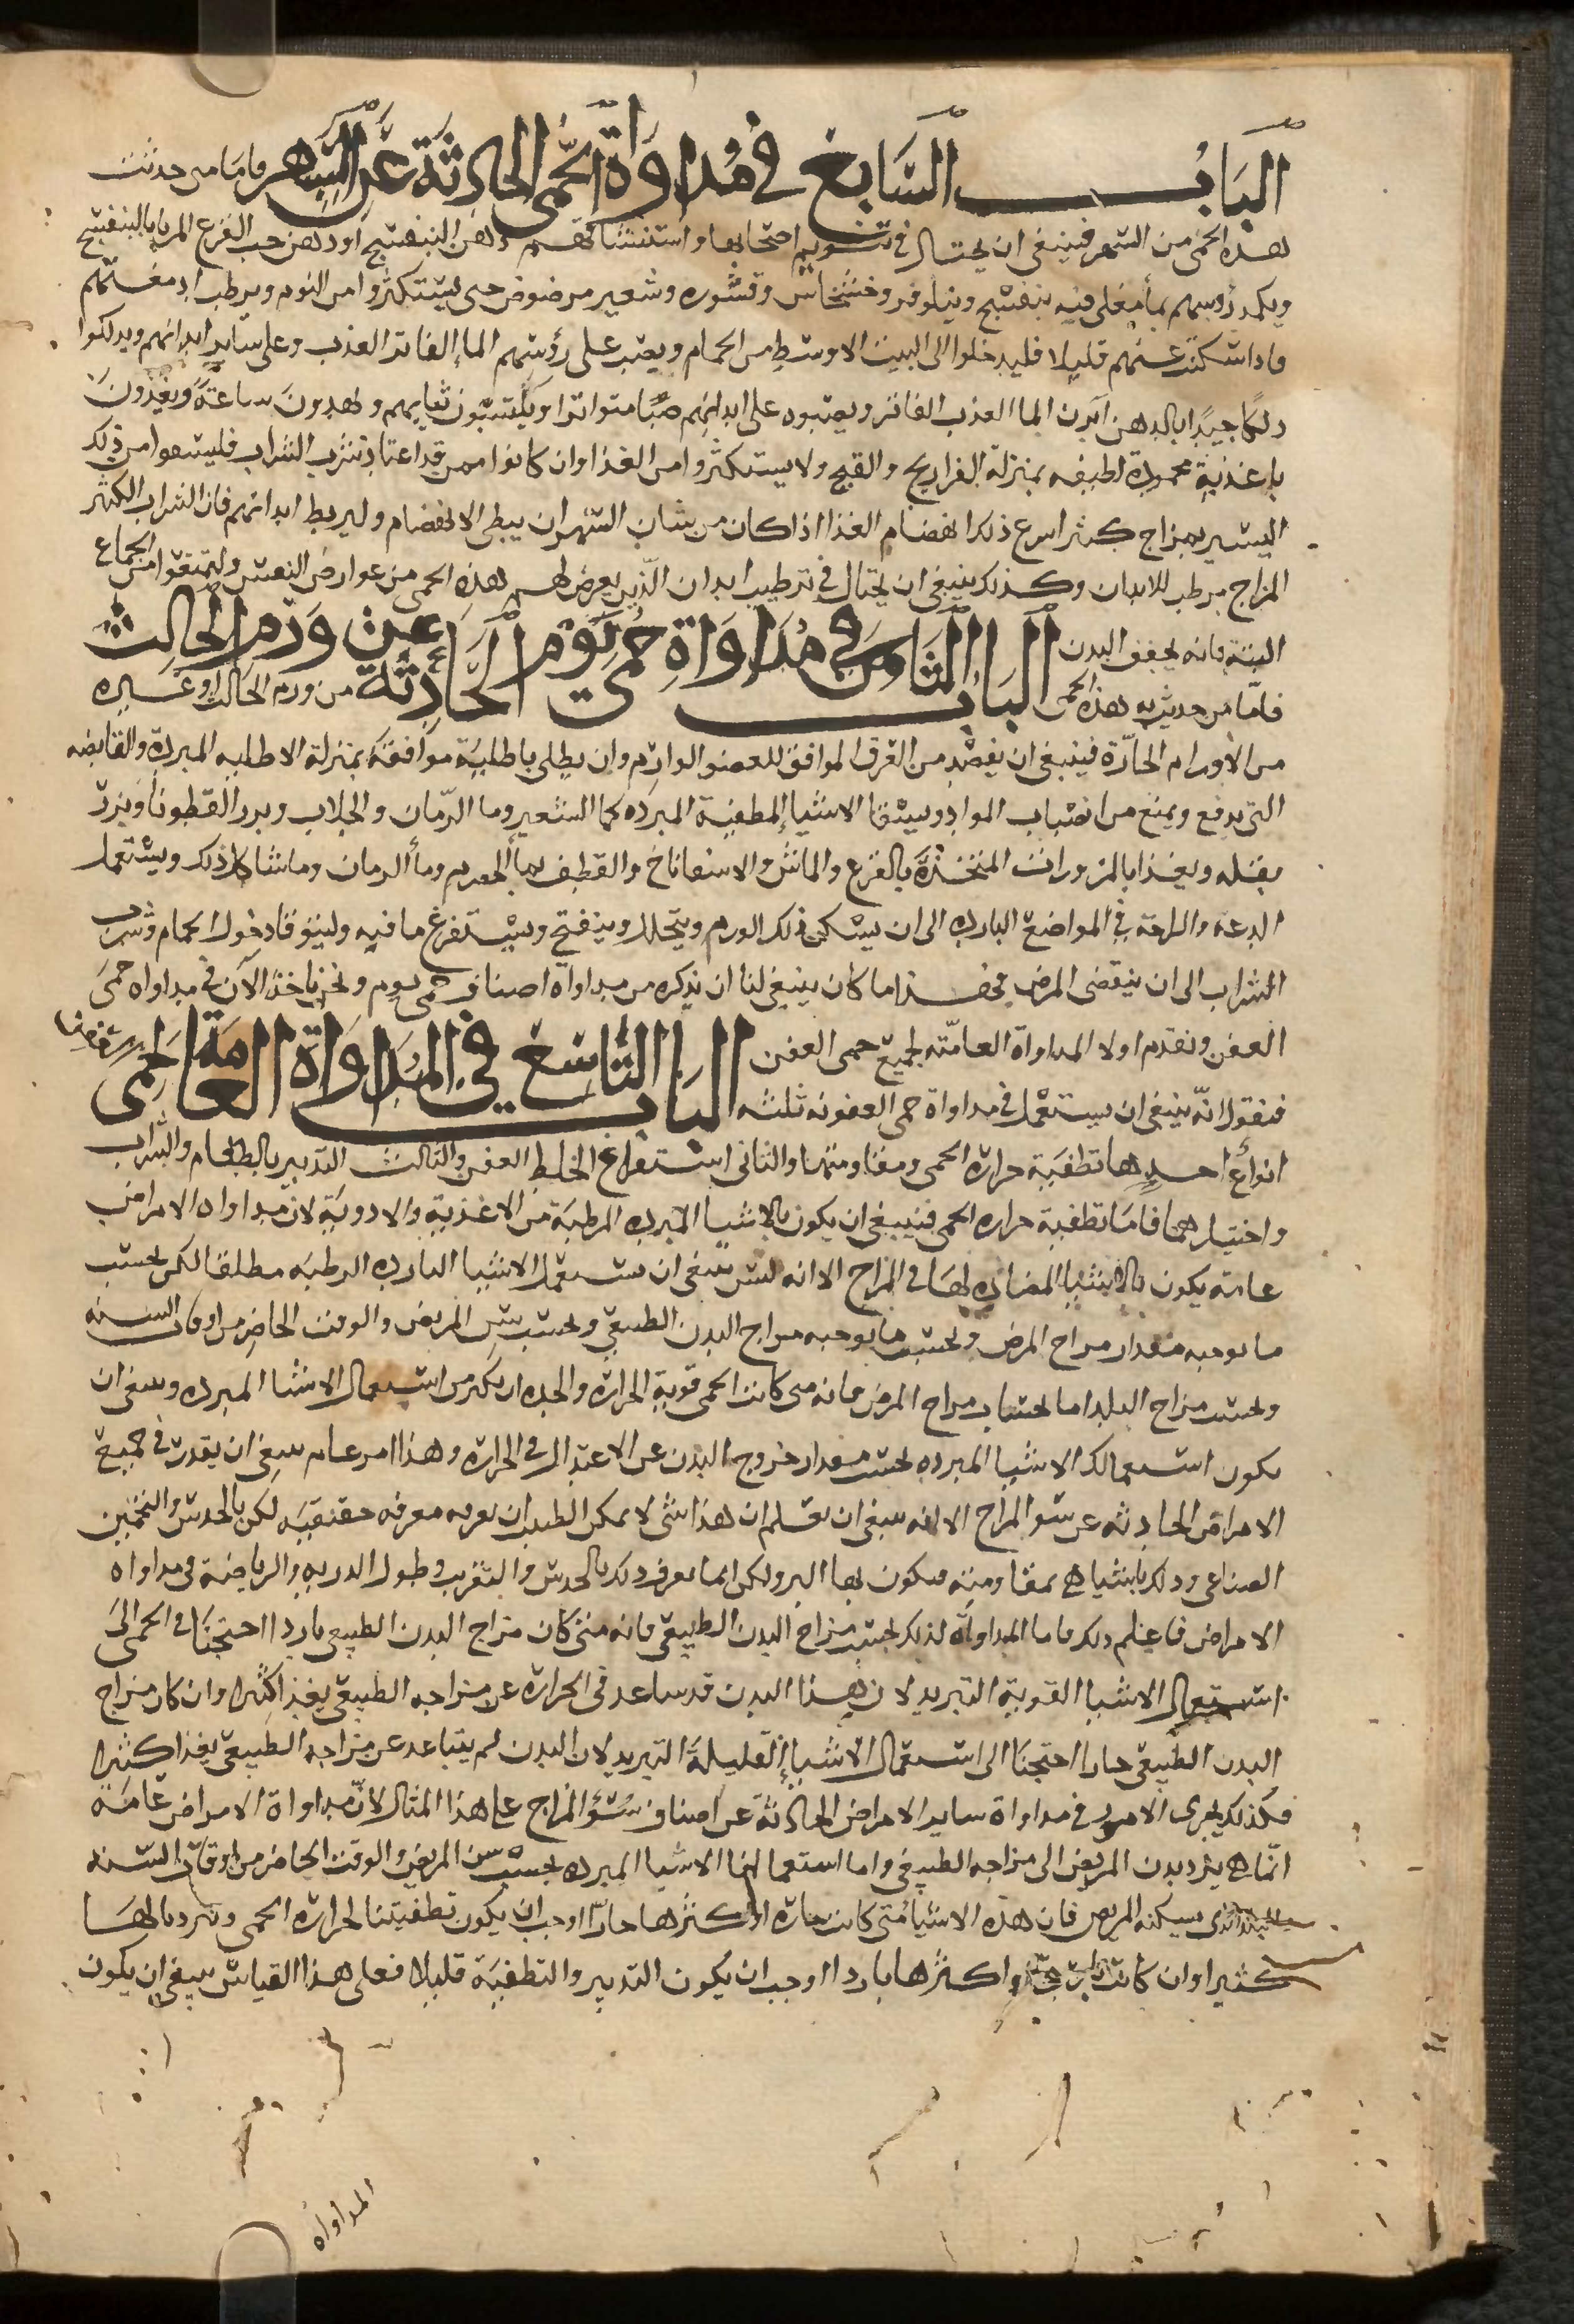 الباب السابع في مداواة الحمى الحادثة عن السهر فاما من حدثت
هذه الحمى من السهر فينبغي ان يحتال في تنويم اصحابها واستنشاقهم دهن البنفسج او دهن حب القرع المربا بالبنفسج
ويكمد رؤسهم بماء مغلي فيه بنفسج ونيلوفر وخشخاش وقشوره وشعير مرضوض حتى يستكثروا من النوم ويرطب ادمغتهم
فاذا سكنت عنهم قليلا فليدخلوا الى البيت الاوسط من الحمام ويصب على رؤسهم الماء الفاتر العذب وعلى ساير ابدانهم ويدلكوا
دلكا جيدا بالدهن ابدن الما العذب الفاتر ويصبوه على ابدانهم صبا متواترا ويلبسون ثيابهم ويهدون ساعة ويغذون
باغذية محمودة لطيفه بمنزلة الفراريج والقبج ولا يستكثروا من الغذا وان كانوا ممن قد اعتاد شرب الشراب فليسقوا من ذلك
اليسير بمزاج كثير اسرع ذلك انهضام الغذا اذا كان من شان السهر ان يبطي الانهضام وليربط ابدانهم فان الشراب الكثير
المزاج يرطب للابدان وكذلك ينبغي ان يحتال في ترطيب ابدان الذين يعرض لهم هذه الحمى من عوارض النفس وليمنعوا من الجماع
البتة فانه يجفف البدن الباب الثامن في مداواة حمى يوم الحادثة عن ورم الحالب
فاما من حدثت به هذه الحمى من ورم الحالب او غيره
من الاورام الحارة فينبغي ان يفصد من العرق الموافق للعضو الوارم وان يطلى باطلية موافقة بمنزلة الاطليه المبردة والقابضه
التي تدفع ويمنع من انصباب المواد ويسقا الاشيا المطفية المبرده كما الشعير وما الرمان والجلاب وبزر القطونا وبزر
بقله ويغذا بالمزورات المتخذة بالقرع والماش والاسفاناخ والقطف بماء الحصرم وماء الرمان وما شاكل ذلك ويستعمل
الدعة والراحة في المواضع الباردة الى ان يسكن ذلك الورم ويتحلل وينفتح ويستفرغ ما فيه وليتوقا دخول الحمام وشرب
الشراب الى ان ينقضي المرض فهذا ما كان ينبغي لنا ان نذكره من مداواة اصناف حمى يوم ونحن ناخذ الآن في مداواه حمى
العفن ونقدم اولا المداواة العامة لجميع حمى العفن الباب التاسع في المداواة العامة لحمى
فنقول انه ينبغي ان يستعمل في مداواة حمى العفونه ثلثه
انواع احدها تطفية حرارة الحمى ومقاومتها والثاني استفراغ الخلط العفن والثالث التدبير بالطعام والشراب
واختيارهما فاما تطفية حراره الحمى فينبغي ان يكون بالاشيا المبرده المرطبة من الاغذية والادوية لان مداواه الامراض
عامة يكون بالاشيا المضاده لها في المزاج الا انه ليس ينبغي ان يستعمل الاشيا البارده الرطبه مطلقا لكن بحسب
ما يوجبه مقدار مزاج المرض وبحسب ما يوجبه مزاج البدن الطبيعي وبحسب سن المريض والوقت الحاضر من اوقات السنه
وبحسب مزاج البلد اما بحساب مزاج المرض فانه متى كانت الحمى قوية الحرارة والحده ان يكثر من استعمال الاشيا المبرده وينبغي ان
يكون استعمالك الاشيا المبرده بحسب مقدار خروج البدن عن الاعتدال في الحرارة وهذا امر عام ينبغي ان يقدر في جميع
الامراض الحادثه عن سو المزاج الا انه ينبغي ان تعلم ان هذا شي لا يمكن الطبيب ان يعرفه معرفه حقيقيه لكن بالحدس والتخمين
الصناعي وذلك باشيا هي بمقاومته فيكون بها البرو لكن انما يعرف ذلك بالحدس والتقريب وطول الدربه والرياضة في مداواه
الامراض فاعلم ذلك فاما المداواة لذلك بحسب مزاج البدن الطبيعي فانه متى كان مزاج البدن الطبيعي باردا احتجنا في الحمى الى
استعمال الاشيا القوية التبريد لان هذا البدن قد ساعد في الحرارة عن مزاجه الطبيعي بعدا كثيرا وان كان مزاج
البدن الطبيعي حارا احتجنا الى استعمال الاشيا القليلة التبريد لان البدن لم يتباعد عن مزاجه الطبيعي بعدا كثيرا
فكذلك يجرى الامر في مداواة ساير الامراض الحادثة عن اصناف سؤ المزاج على هذا المثال لان مداواة الامراض عامة
انما هي يرد بدن المريض الى مزاجه الطبيعي واما استعمالنا الاشيا المبرده بحسب سن المريض والوقت الحاضر من اوقات السنه
والبلد الذي يسكنه المريض فان هذه الاشيا متى كانت حارة او اكثرها حارا اوجب ان يكون تطفيتنا لحرارة الحمى وتبريدنا لها
كثيرا وان كانت باردة او اكثرها باردا اوجب ان يكون التدبير والتطفية قليلا فعلى هذا القياس ينبغي ان يكون
المداواه